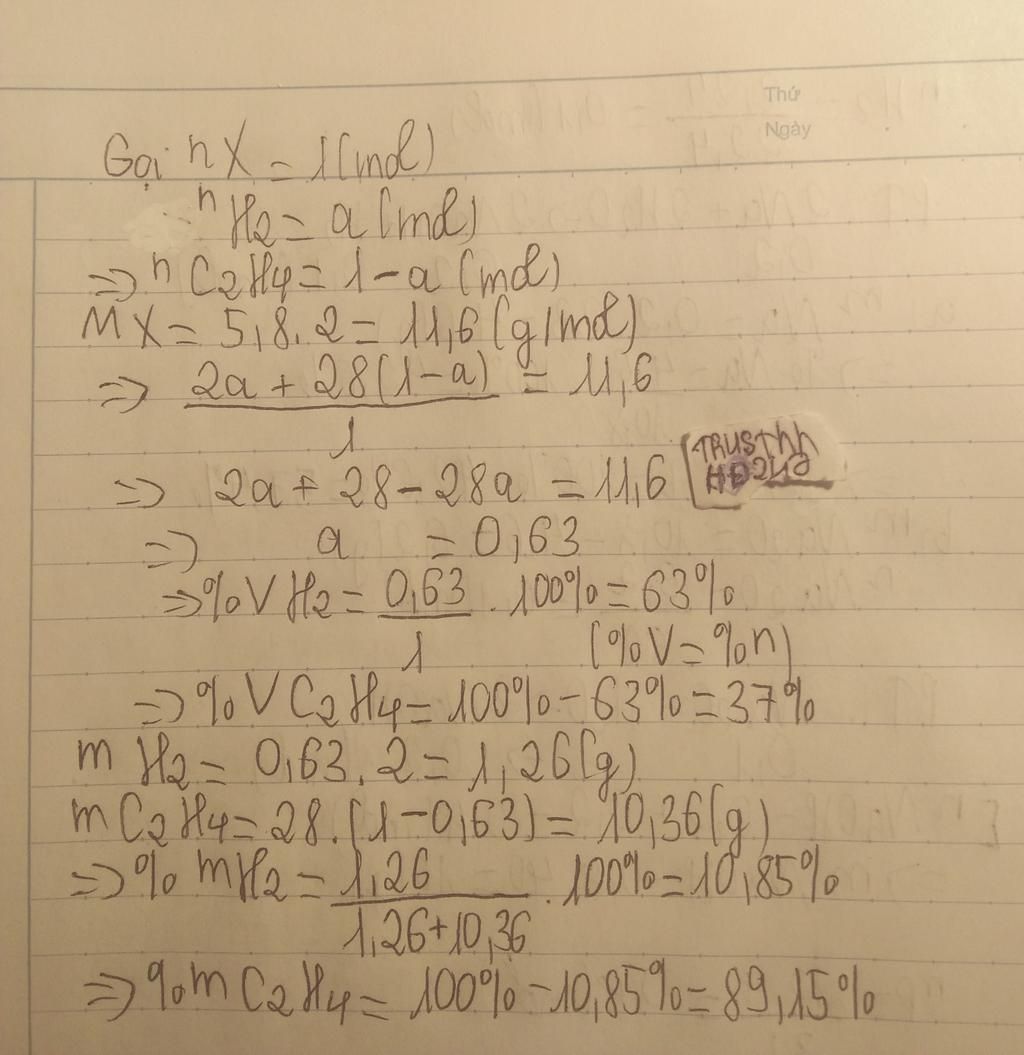 Thứ
Ngày
Gọi nX = 1(mol)
nH2 = a(mol)
=> nC2H4 = 1-a(mol)
MX = 5,8.2 = 11,6(g/mol)
=> 2a + 28(1-a) = 11,6
1
=> 2a + 28 - 28a = 11,6
TRUSThh
HĐ2119
=> a = 0,63
=> %VH2 = 0,63 . 100% = 63%
1 (%V = %n)
=> %VC2H4 = 100% - 63% = 37%
mH2 = 0,63.2 = 1,26(g)
mC2H4 = 28.(1-0,63) = 10,36(g)
=> %mH2 = 1,26 . 100% = 10,85%
1,26+10,36
=> %mC2H4 = 100% - 10,85% = 89,15%